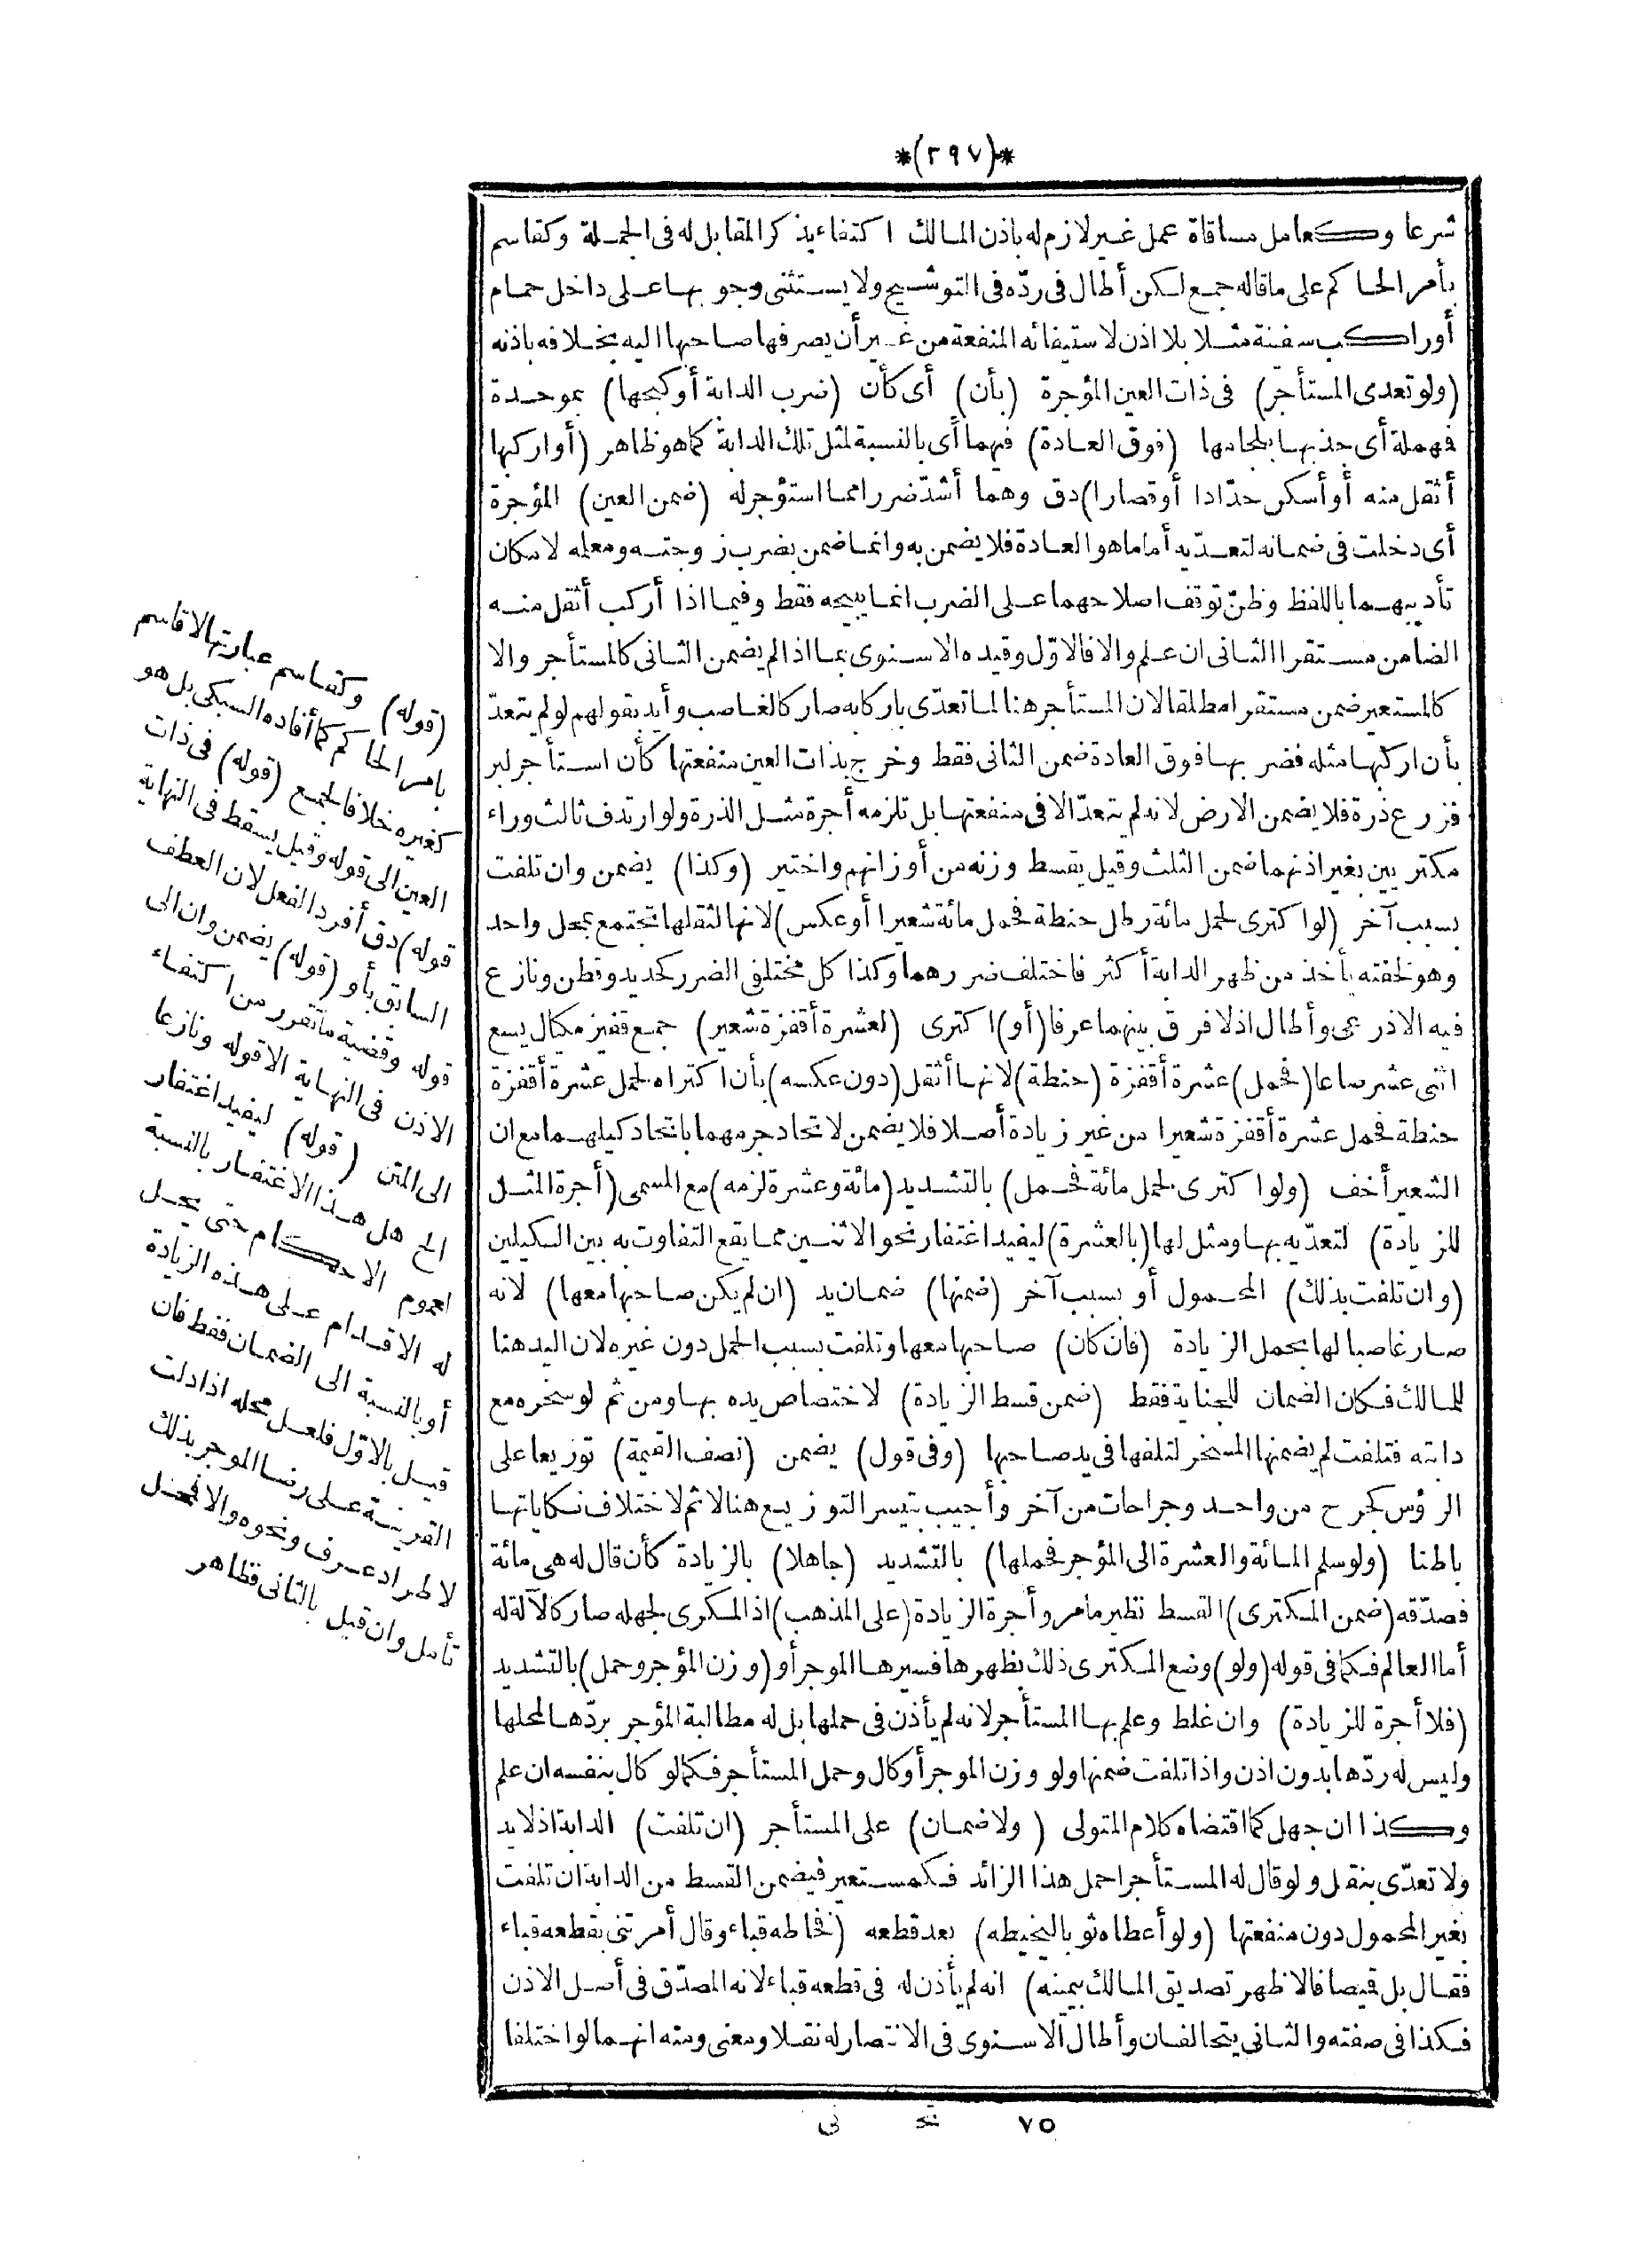 *(٢٩٧)*
شرعا وكعامل مساقاة عمل غير لازم له باذن المالك اكتفاء بذكر المقابل له فى الجملة وكقاسم
بأمر الحاكم على ما قاله جمع لكن أطال فى ردّه فى التوشيح ولا يستثنى وجوبها على داخل حمام
أو راكب سفينة مثلا بلا اذن لاستيفائه المنفعة من غير أن يصرفها صاحبها اليه بخلافه باذنه
(ولو تعدى المستأجر) فى ذات العين المؤجرة (بأن) أى كأن (ضرب الدابة أو كبحها) بموحدة
فهملة أى جذبها بلجامها (فوق العادة) فيهما أى بالنسبة لمثل تلك الدابة كما هو ظاهر (أو اركبها
أثقل منه أو أسكن حدّادا أو قصارا) دق وهما أشدّ ضررا مما استؤجر له (ضمن العين) المؤجرة
أى دخلت فى ضمانه لتعدّيه أما ما هو العادة فلا يضمن به وانما ضمن بضرب زوجته ومعلمه لامكان
تأديبهما باللفظ وظنّ توقف اصلاحهما على الضرب انما يبيحه فقط وفيما اذا أركب أثقل منه
الضامن مستقرا الثانى ان علم والا فالاوّل وقيده الاسنوى بما اذا لم يضمن الثانى كالمستأجر والا
كالمستعير ضمن مستقرا مطلقا لان المستأجر هنا لما تعدّى باركابه صار كالغاصب وأيد بقولهم لو لم يتعدّ
بأن اركبها مثله فضربها فوق العادة ضمن الثانى فقط وخرج بذات العين منفعتها كأن استأجر لبر
فزرع ذرة فلا يضمن الارض لانه لم يتعدّ الا فى منفعتها بل تلزمه أجرة مثل الذرة ولو ارتدف ثالث وراء
مكتريين بغير اذنهما ضمن الثلث وقيل يقسط وزنه من أوزانهم واختير (وكذا) يضمن وان تلفت
بسبب آخر (لو اكترى لحمل مائة رطل حنطة فحمل مائة شعيرا أو عكس) لانها لثقلها تجتمع بمحل واحد
وهو لخفته يأخذ من ظهر الدابة أكثر فاختلف ضررهما وكذا كل مختلفى الضرر كحديد وقطن ونازع
فيه الاذرعى وأطال اذ لا فرق بينهما عرفا (أو) اكترى (لعشرة أقفزة شعير) جمع قفيز مكيال يسع
اثنى عشر صاعا (فحمل) عشرة أقفزة (حنطة) لانها أثقل (دون عكسه) بأن اكتراه لحمل عشرة أقفزة
حنطة فحمل عشرة أقفزة شعيرا من غير زيادة أصلا فلا يضمن لاتحاد جرمهما باتحاد كيلهما مع ان
الشعير أخف (ولو اكترى لحمل مائة فحمل) بالتشديد (مائة وعشرة لزمه) مع المسمى (أجرة المثل
للزيادة) لتعدّيه بها ومثل لها (بالعشرة) ليفيد اغتفار نحو الاثنين مما يقع التفاوت به بين الكيلين
(وان تلفت بذلك) المحمول أو بسبب آخر (ضمنها) ضمان يد (ان لم يكن صاحبها معها) لانه
صار غاصبا لها بحمل الزيادة (فان كان) صاحبها معها وتلفت بسبب الحمل دون غيره لان اليد هنا
للمالك فكان الضمان للجناية فقط (ضمن قسط الزيادة) لاختصاص يده بها ومن ثم لو سخره مع
دابته فتلفت لم يضمنها المسخر لتلفها فى يد صاحبها (وفى قول) يضمن (نصف القيمة) توزيعا على
الرؤس كجرح من واحد وجراحات من آخر وأجيب بتيسر التوزيع هنا لا ثم لاختلاف نكاياتها
باطنا (ولو سلم المائة والعشرة الى المؤجر فحملها) بالتشديد (جاهلا) بالزيادة كأن قال له هى مائة
فصدّقه (ضمن المكترى) القسط نظير ما مر وأجرة الزيادة (على المذهب) اذ المكرى لجهله صار كالآلة له
أما العالم فكما فى قوله (ولو) وضع المكترى ذلك بظهرها فسيرها الموجر أو (وزن المؤجر وحمل) بالتشديد
(فلا أجرة للزيادة) وان غلط وعلم بها المستأجر لانه لم يأذن فى حملها بل له مطالبة المؤجر بردّها لمحلها
وليس له ردّها بدون اذن واذا تلفت ضمنها ولو وزن الموجر أو كال وحمل المستأجر فكما لو كال بنفسه ان علم
وكذا ان جهل كما اقتضاه كلام المتولى (ولا ضمان) على المستأجر (ان تلفت) الدابة اذ لا يد
ولا تعدّى بنقل ولو قال له المستأجر احمل هذا الزائد فكمستعير فيضمن القسط من الدابة ان تلفت
بغير المحمول دون منفعتها (ولو أعطاه ثوبا ليخيطه) بعد قطعه (فخاطه قباء وقال أمرتنى بقطعه قباء
فقال بل قميصا فالاظهر تصديق المالك بيمينه) انه لم يأذن له فى قطعه قباء لانه المصدّق فى أصل الاذن
فكذا فى صفته والثانى يتحالفان وأطال الاسنوى فى الانتصار له نقلا ومعنى ومنه انهما لو اختلفا
٧٥ تح نى
(قوله) وكقاسم عبارتها لا قاسم
بامر الحاكم كما أفاده السبكى بل هو
كغيره خلافا لجمع (قوله) فى ذات
العين الى قوله وقيل يسقط فى النهاية
قوله) دق أفرد الفعل لان العطف
السابق بأو (قوله) يضمن وان الى
قوله وقضية ما تقرر من اكتفاء
الاذن فى النهاية الا قوله ونازعا
الى المتن (قوله) ليفيد اغتفار
الخ هل هذا الاغتفار بالنسبة
لعموم الاحكام حتى يحل
له الاقدام على هذه الزيادة
أو بالنسبة الى الضمان فقط فان
قيل بالاوّل فلعل محله اذا دلت
القرينة على رضا الموجر بذلك
لاطراد عرف ونحوه والا فمحل
تأمل وان قيل بالثانى فظاهر